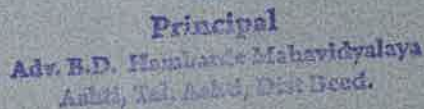 Principal
Adv. B.D. Hambarde Mahavidyalaya
Ashti, Tal. Ashti, Dist Beed.